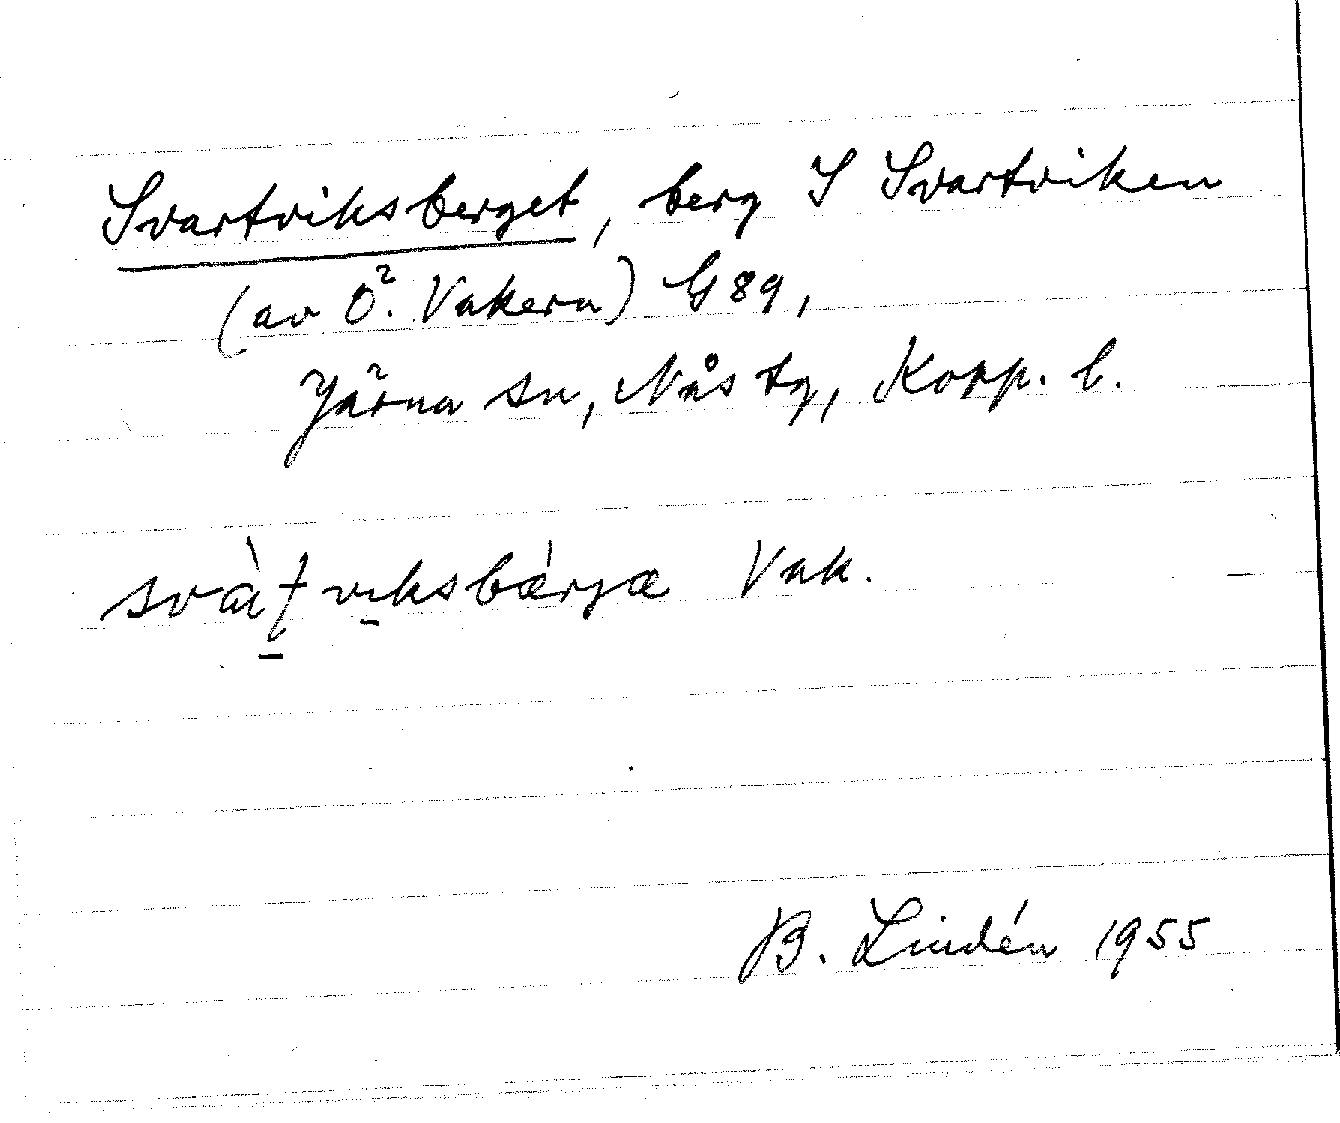 Svartviksberget, berg S Svartviken
(av Ö. Vakern) G 89,
Järna sn, Nås tg, Kopp. l.
svàt̠vi̠ksbǽrjæ Vak.
B. Lindén 1955